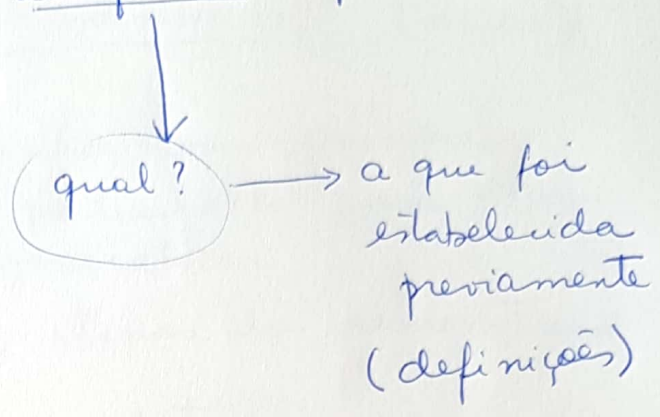 qual? → a que foi
estabelecida
previamente
(definições)